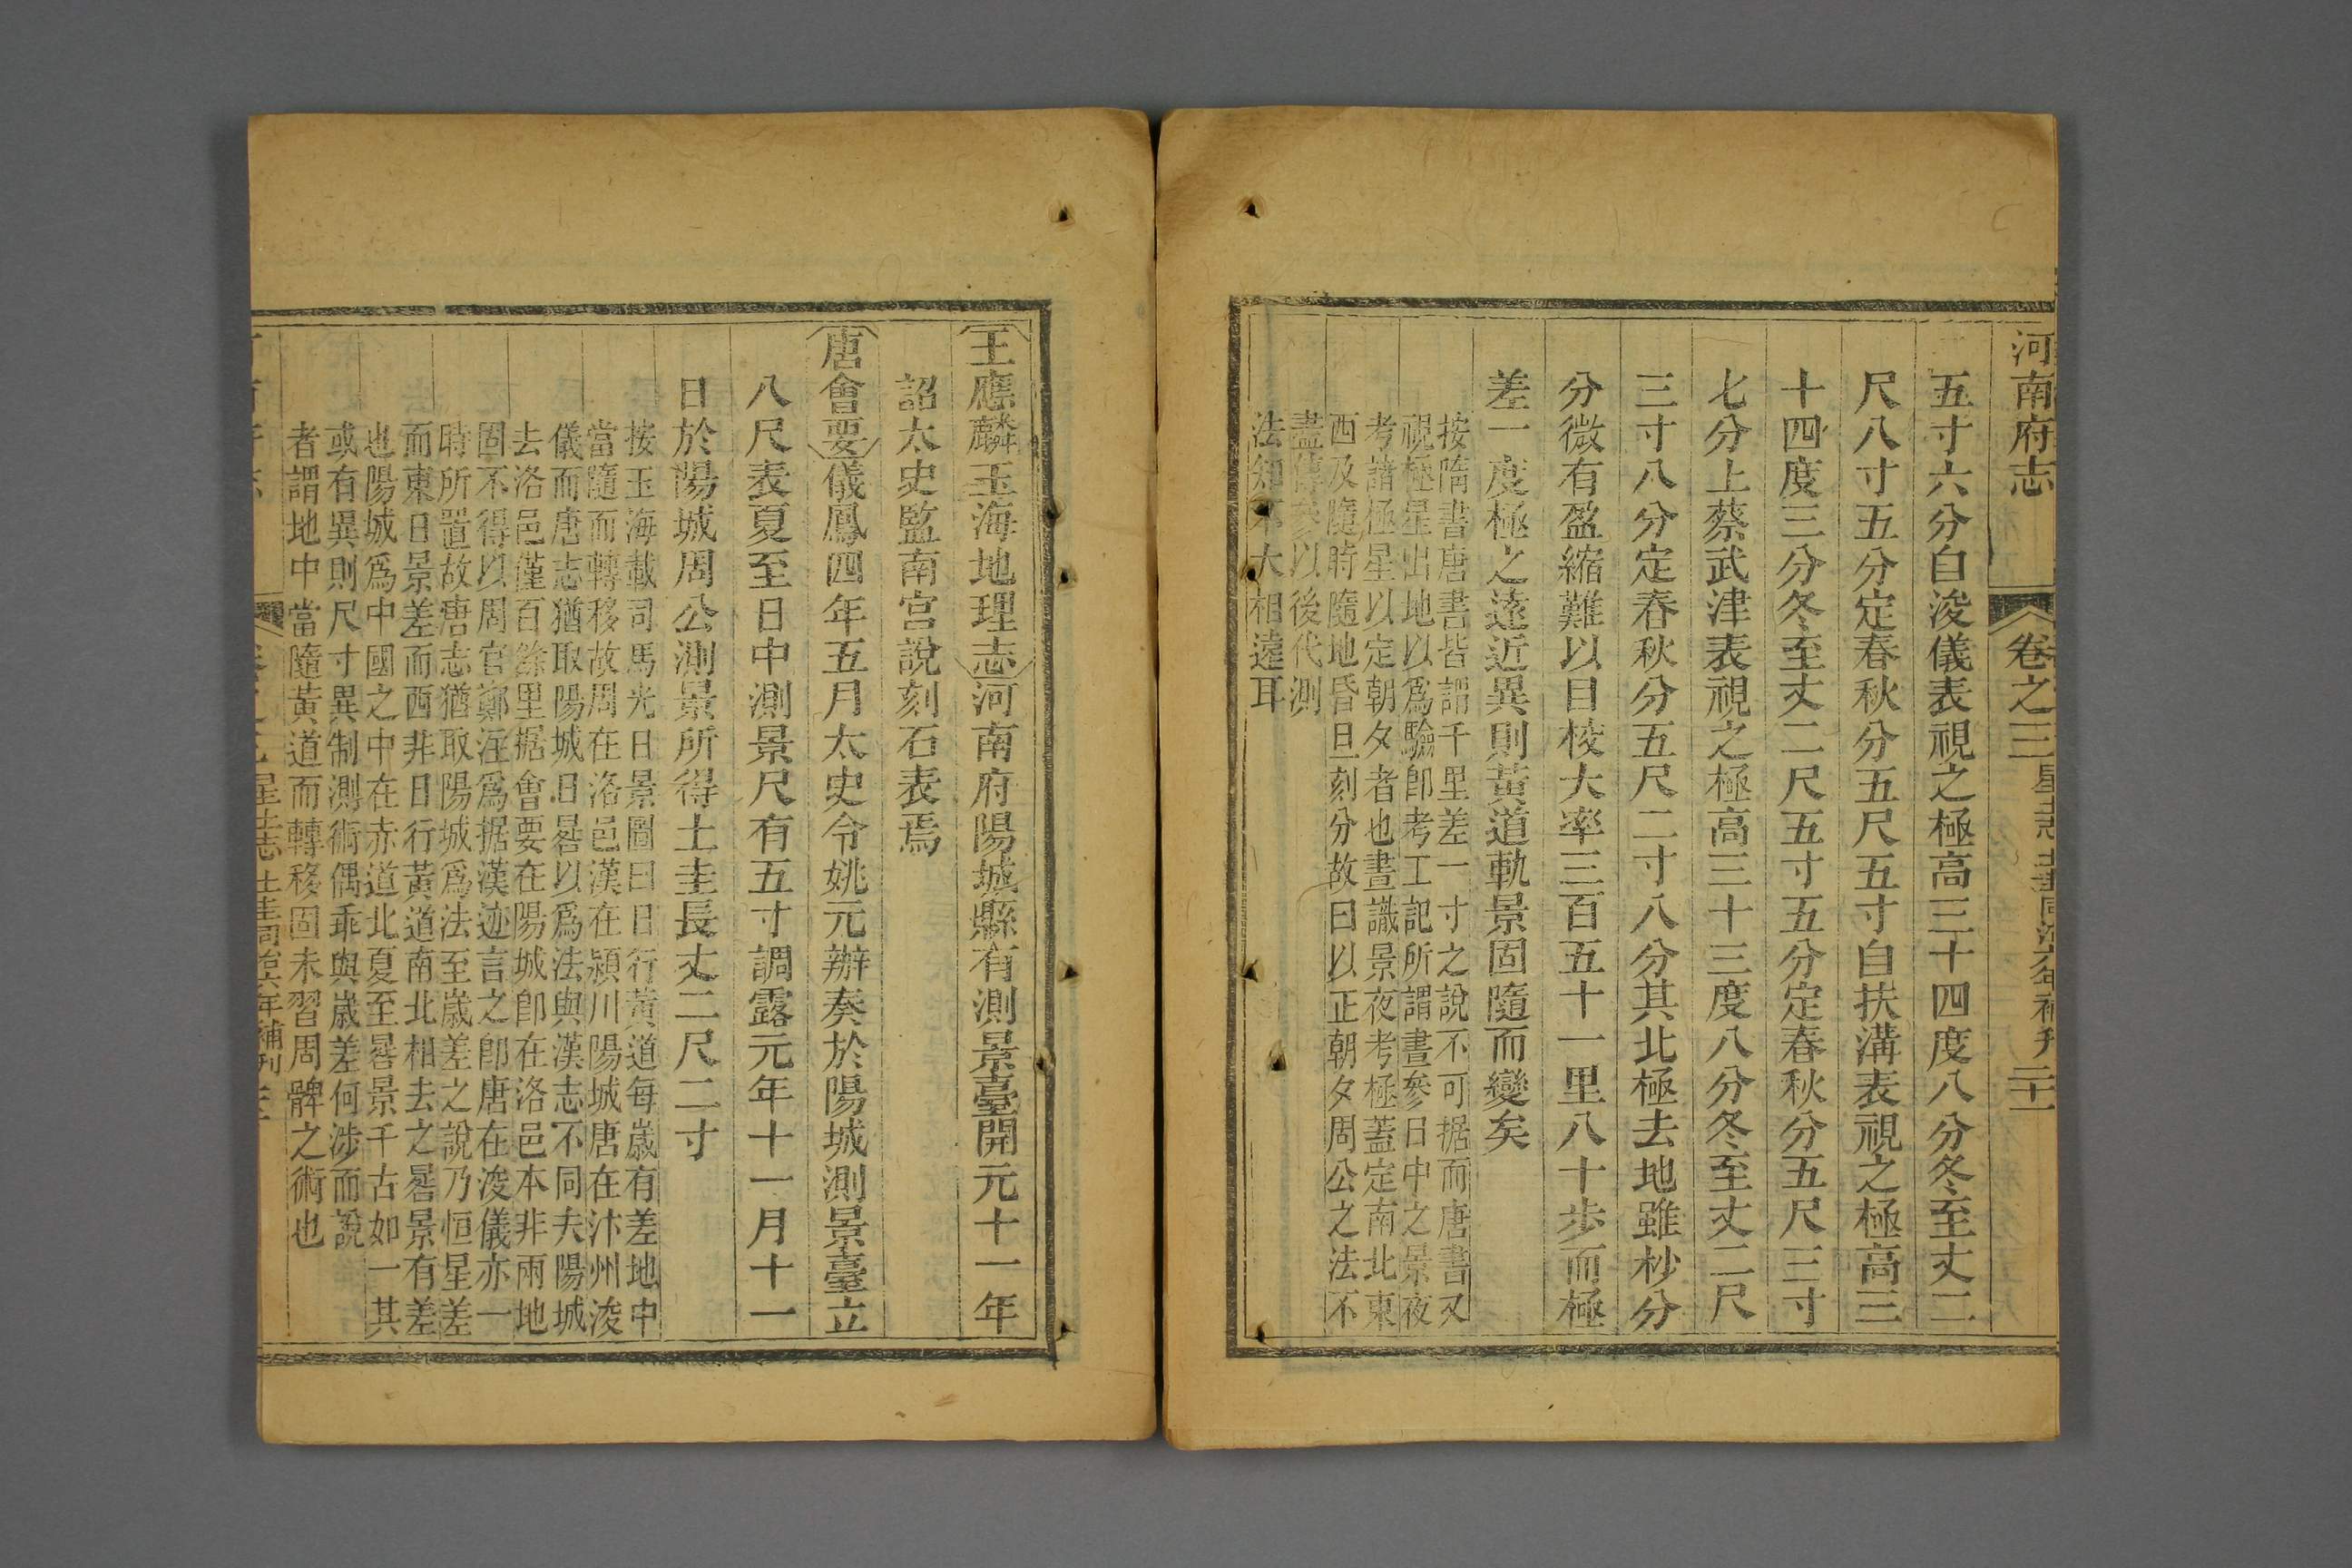 河南府志
卷之三
星土志
土圭同治六年補刊
二十一
五寸六分自浚儀表視之極高三十四度八分冬至丈二
尺八寸五分定春秋分五尺五寸自扶溝表視之極高三
十四度三分冬至丈二尺五寸五分定春秋分五尺三寸
七分上蔡武津表視之極高三十三度八分冬至丈二尺
三寸八分定春秋分五尺二寸八分其北極去地雖杪分
分微有盈縮難以目校大率三百五十一里八十步而極
差一度極之遠近異則黃道軌景固隨而變矣
按隋書唐書皆謂千里差一寸之說不可据而唐書又
視極星出地以爲驗卽考工記所謂晝參日中之景夜
考諸極星以定朝夕者也晝識景夜考極蓋定南北東
西及隨時隨地昏旦刻分故曰以正朝夕周公之法不
盡傳參以後代測
法知不大相遠耳
王應麟玉海地理志河南府陽城縣有測景臺開元十一年
詔太史監南宮說刻石表焉
唐會要儀鳳四年五月太史令姚元辯奏於陽城測景臺立
八尺表夏至日中測景尺有五寸調露元年十一月十一
日於陽城周公測景所得土圭長丈二尺二寸
按玉海載司馬光日景圖曰日行黃道每歲有差地中
當隨而轉移故周在洛邑漢在潁川陽城唐在汴州浚
儀而唐志猶取陽城日晷以爲法與漢志不同夫陽城
去洛邑僅百餘里据會要在陽城卽在洛邑本非兩地
固不得以周官鄭注爲据漢迹言之卽唐在浚儀亦一
時所置故唐志猶取陽城爲法至歲差之說乃恒星差
而東日景差而西非日行黃道南北相去之晷景有差
也陽城爲中國之中在赤道北夏至晷景千古如一其
或有異則尺寸異制測術偶乖與歲差何涉而說
者謂地中當隨黃道而轉移固未習周髀之術也
星土志
土圭同治六年補刊